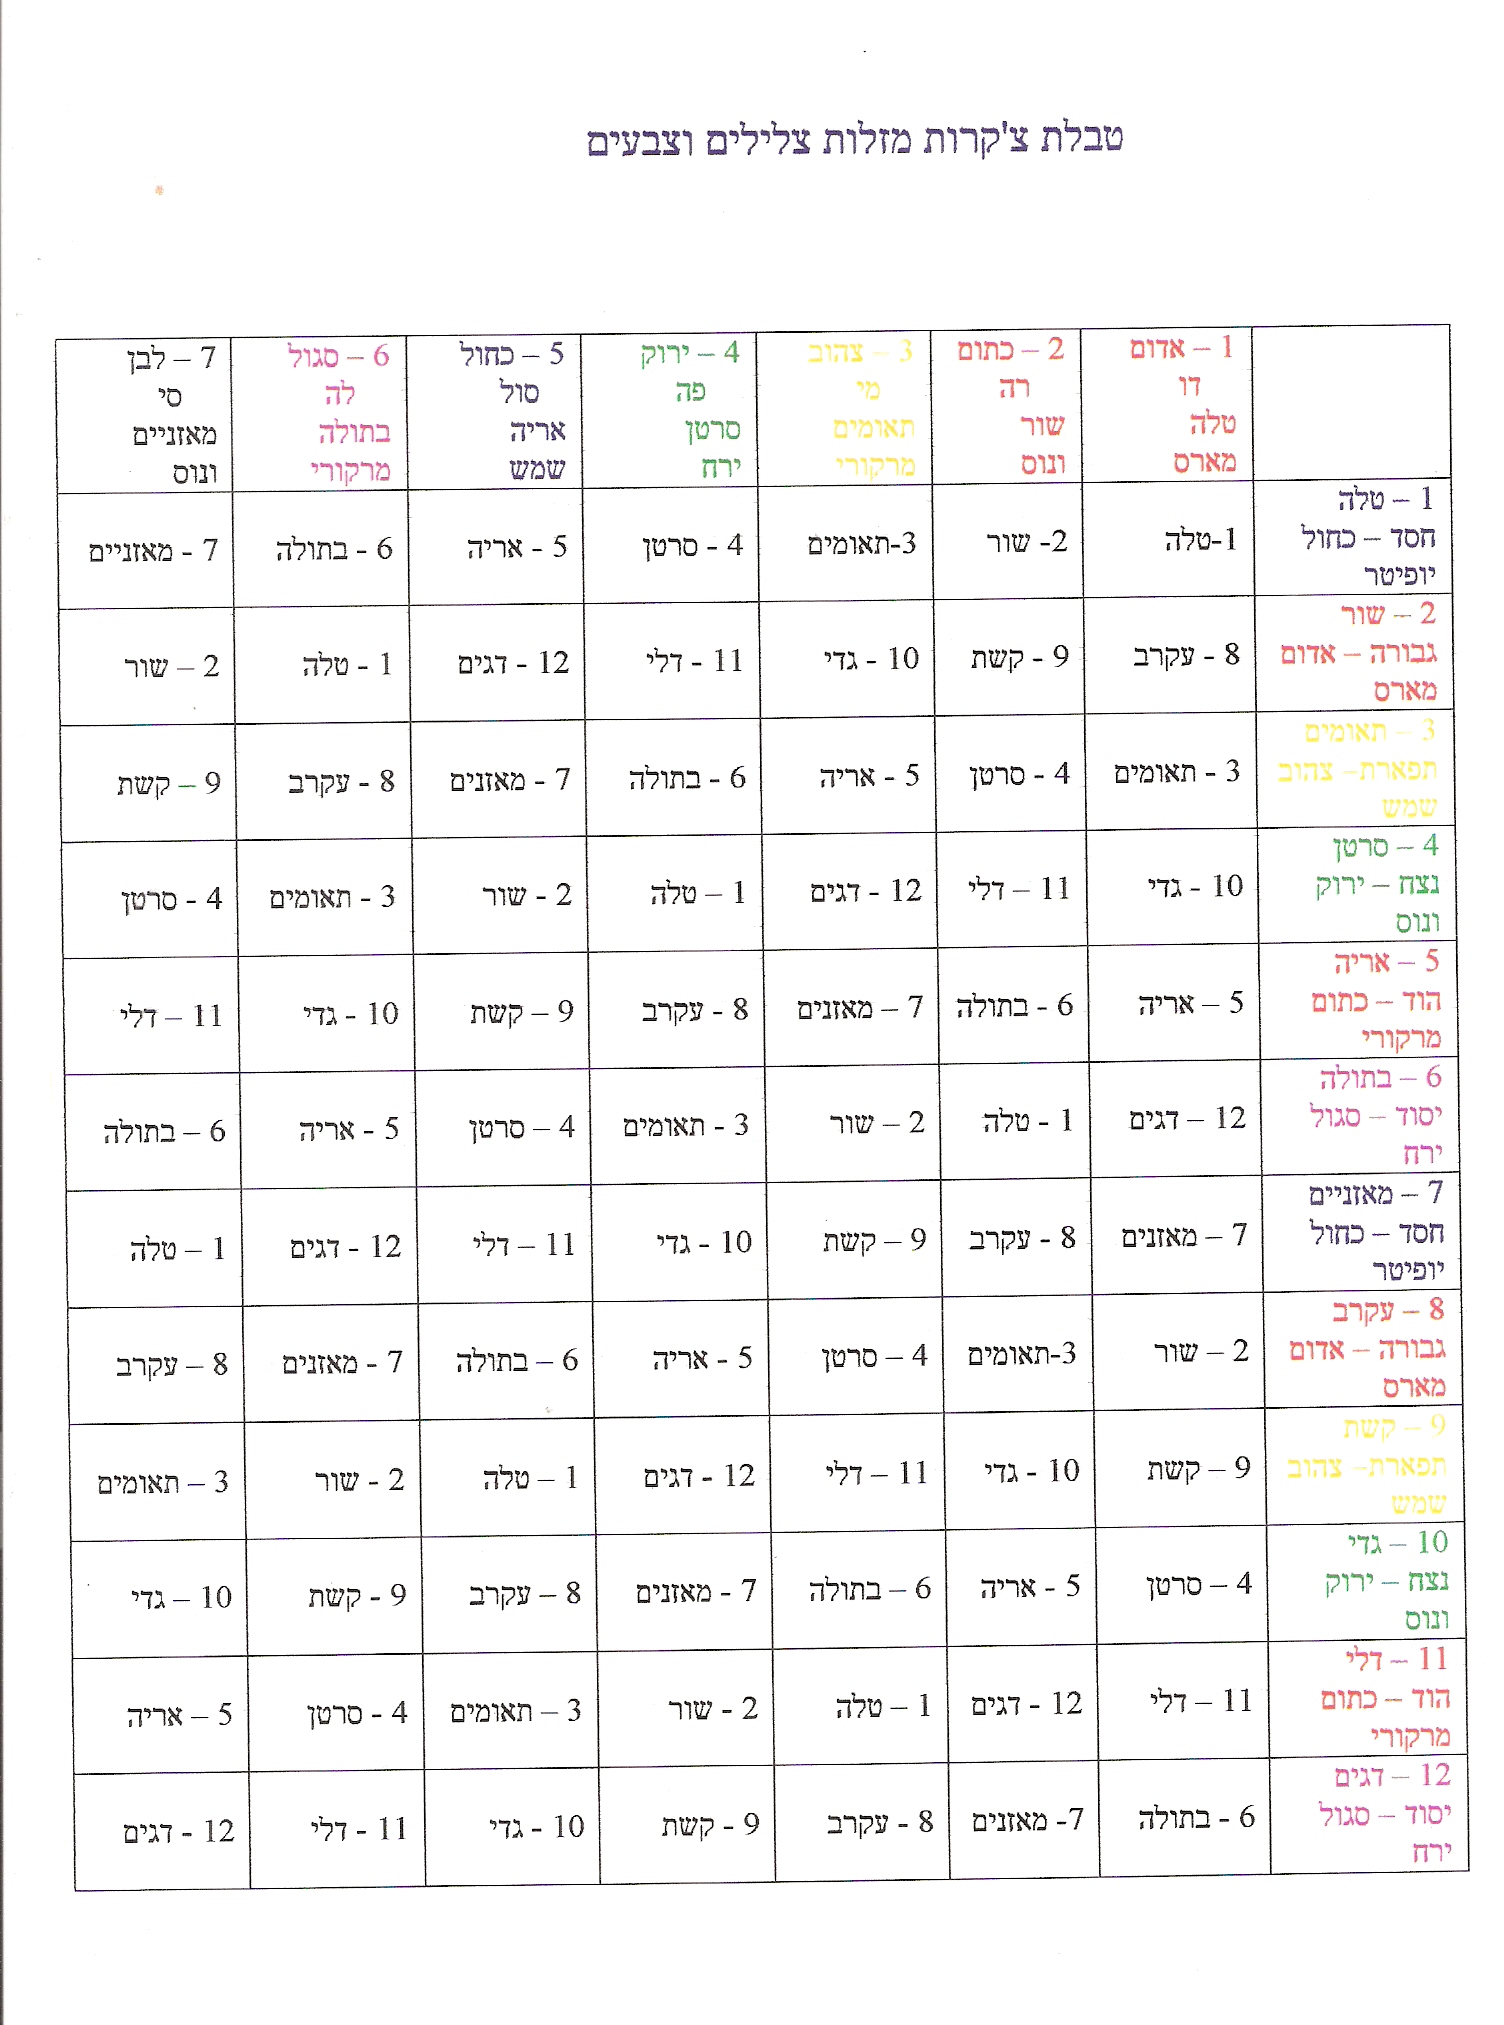 טבלת צ'קרות מזלות צלילים וצבעים
1 – אדום
דו
טלה
מארס
2 – כתום
רה
שור
ונוס
3 – צהוב
מי
תאומים
מרקורי
4 – ירוק
פה
סרטן
ירח
5 – כחול
סול
אריה
שמש
6 – סגול
לה
בתולה
מרקורי
7 – לבן
סי
מאזניים
ונוס
1 – טלה
חסד – כחול
יופיטר
1-טלה
2- שור
3-תאומים
4 - סרטן
5 - אריה
6 - בתולה
7 - מאזניים
2 – שור
גבורה – אדום
מארס
8 - עקרב
9 - קשת
10 - גדי
11 - דלי
12 - דגים
1 - טלה
2 – שור
3 – תאומים
תפארת– צהוב
שמש
3 - תאומים
4 - סרטן
5 - אריה
6 - בתולה
7 - מאזנים
8 - עקרב
9 – קשת
4 – סרטן
נצח – ירוק
ונוס
10 - גדי
11 – דלי
12 - דגים
1 – טלה
2 - שור
3 - תאומים
4 - סרטן
5 – אריה
הוד – כתום
מרקורי
5 – אריה
6 - בתולה
7 – מאזנים
8 - עקרב
9 – קשת
10 - גדי
11 – דלי
6 – בתולה
יסוד – סגול
ירח
12 – דגים
1 - טלה
2 – שור
3 - תאומים
4 – סרטן
5 - אריה
6 – בתולה
7 – מאזניים
חסד – כחול
יופיטר
7 – מאזנים
8 - עקרב
9 – קשת
10 - גדי
11 – דלי
12 - דגים
1 – טלה
8 – עקרב
גבורה – אדום
מארס
2 – שור
3-תאומים
4 – סרטן
5 - אריה
6 – בתולה
7 - מאזנים
8 – עקרב
9 – קשת
תפארת– צהוב
שמש
9 – קשת
10 - גדי
11 – דלי
12 - דגים
1 – טלה
2 - שור
3 – תאומים
10 – גדי
נצח – ירוק
ונוס
4 – סרטן
5 - אריה
6 – בתולה
7 - מאזנים
8 – עקרב
9 - קשת
10 – גדי
11 – דלי
הוד – כתום
מרקורי
11 – דלי
12 - דגים
1 – טלה
2 - שור
3 – תאומים
4 - סרטן
5 – אריה
12 – דגים
יסוד – סגול
ירח
6 - בתולה
7- מאזנים
8 - עקרב
9 - קשת
10 - גדי
11 - דלי
12 - דגים